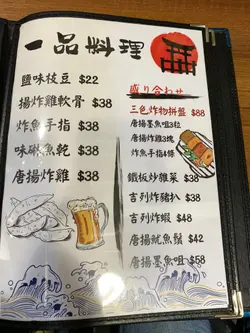 一品料理
鹽味枝豆 $22
揚炸雞軟骨 $38
炸魚手指 $38
味磷魚乾 $38
唐揚炸雞 $38
盛り合わせ
三色炸物拼盤 $88
唐揚墨魚咀3粒
唐揚炸雞3塊
炸魚手指4條
鐵板炒雜菜 $38
吉列炸豬扒 $38
吉列炸蝦 $48
唐揚魷魚鬚 $42
唐揚墨魚咀 $58